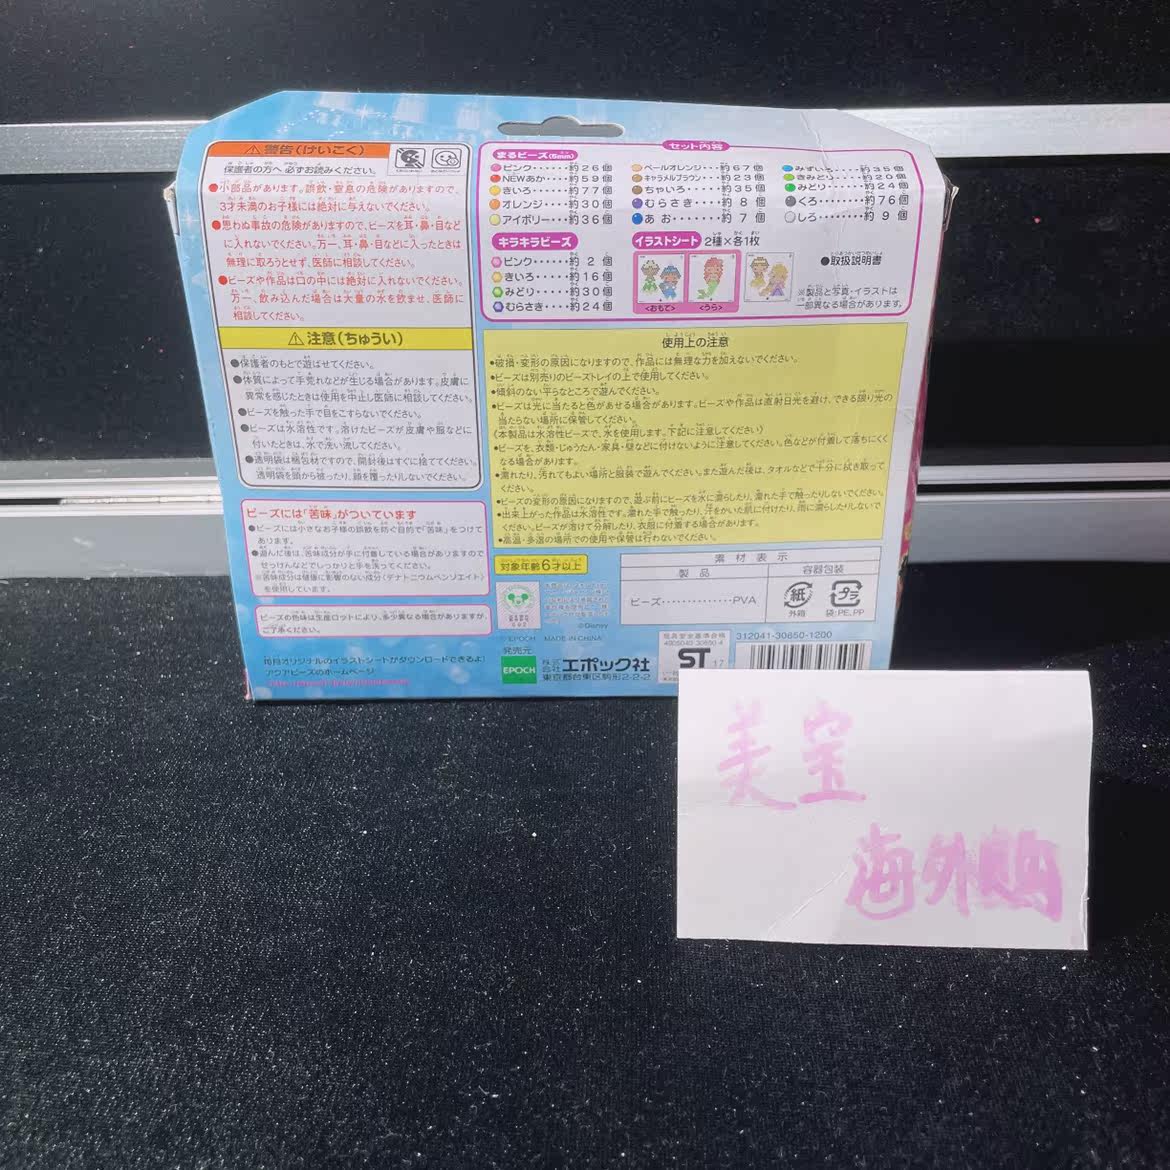 ⚠警告(けいこく)
保護者の方へ 必ずお読みください。
●小部品があります。誤飲・窒息の危険がありますので、
3才未満のお子様には絶対に与えないでください。
●思わぬ事故の危険がありますので、ビーズを耳・鼻・目など
に入れないでください。万一、耳・鼻・目などに入ったときは
無理に取ろうとせず、医師に相談してください。
●ビーズや作品は口の中には絶対に入れないでください。
万一、飲み込んだ場合は大量の水を飲ませ、医師に
相談してください。
⚠注意(ちゅうい)
●保護者のもとで遊ばせてください。
●体質によって手荒れなどが生じる場合があります。皮膚に
異常を感じたときは使用を中止し医師に相談してください。
●ビーズを触った手で目をこすらないでください。
●ビーズは水溶性です。溶けたビーズが皮膚や服などに
付いたときは、水で洗い流してください。
●透明袋は梱包材ですので、開封後はすぐに捨ててください。
透明袋を頭から被ったり、顔を覆ったりしないでください。
ビーズには「苦味」がついています
●ビーズには小さなお子様の誤飲を防ぐ目的で「苦味」をつけて
あります。
●遊んだ後は、苦味成分が手に付着している場合がありますので
せっけんなどでしっかりと手を洗ってください。
※苦味成分は健康に影響のない成分〈デナトニウムベンゾエイト〉
を使用しています。
ビーズの色味は生産ロットにより、多少異なる場合がありますが、
ご了承ください。
毎月オリジナルのイラストシートがダウンロードできるよ!
アクアビーズのホームページ
セット内容
まるビーズ(5mm)
ピンク・・・・・約26個
NEWあか・・・約59個
きいろ・・・・・約77個
オレンジ・・・・約30個
アイボリー・・・約36個
ペールオレンジ・・・約67個
キャラメルブラウン・・・約23個
ちゃいろ・・・・・約35個
むらさき・・・・・約8個
あお・・・・・・・約7個
みずいろ・・・・・約35個
きみどり・・・・・約20個
みどり・・・・・・約24個
くろ・・・・・・・約76個
しろ・・・・・・・約9個
キラキラビーズ
ピンク・・・・・・約2個
きいろ・・・・・・約16個
みどり・・・・・・約30個
むらさき・・・・・約24個
イラストシート 2種×各1枚
<おもて>
<うら>
●取扱説明書
※製品と写真・イラストは
一部異なる場合があります。
使用上の注意
●破損・変形の原因になりますので、作品には無理な力を加えないでください。
●ビーズは別売りのビーズトレイの上で使用してください。
●傾斜のない平らなところで遊んでください。
●ビーズは光に当たると色があせる場合があります。ビーズや作品は直射日光を避け、できる限り光の
当たらない場所に保管してください。
〈本製品は水溶性ビーズで、水を使用します。下記に注意してください〉
●ビーズを、衣類・じゅうたん・家具・壁などに付けないように注意してください。色などが付着して落ちにくく
なる場合があります。
●濡れたり、汚れてもよい場所と服装で遊んでください。また遊んだ後は、タオルなどで十分に拭き取って
ください。
●ビーズの変形の原因になりますので、遊ぶ前にビーズを水に濡らしたり、濡れた手で触ったりしないでください。
●出来上がった作品は水溶性です。濡れた手で触ったり、汗をかいた肌に付けたり、雨に濡らしたりしないで
ください。ビーズが溶けて分解したり、衣服に付着する場合があります。
●高温・多湿の場所での使用や保管は行わないでください。
対象年齢6才以上
素材表示
製品
容器包装
ビーズ・・・・・・・・・・・・・・PVA
紙
外箱
プラ
袋:PE,PP
©Disney
©EPOCH MADE IN CHINA
発売元
EPOCH
株式会社エポック社
東京都台東区駒形2-2-2
玩具安全基準合格
ST
17
312041-30850-1200
美宝
海外购